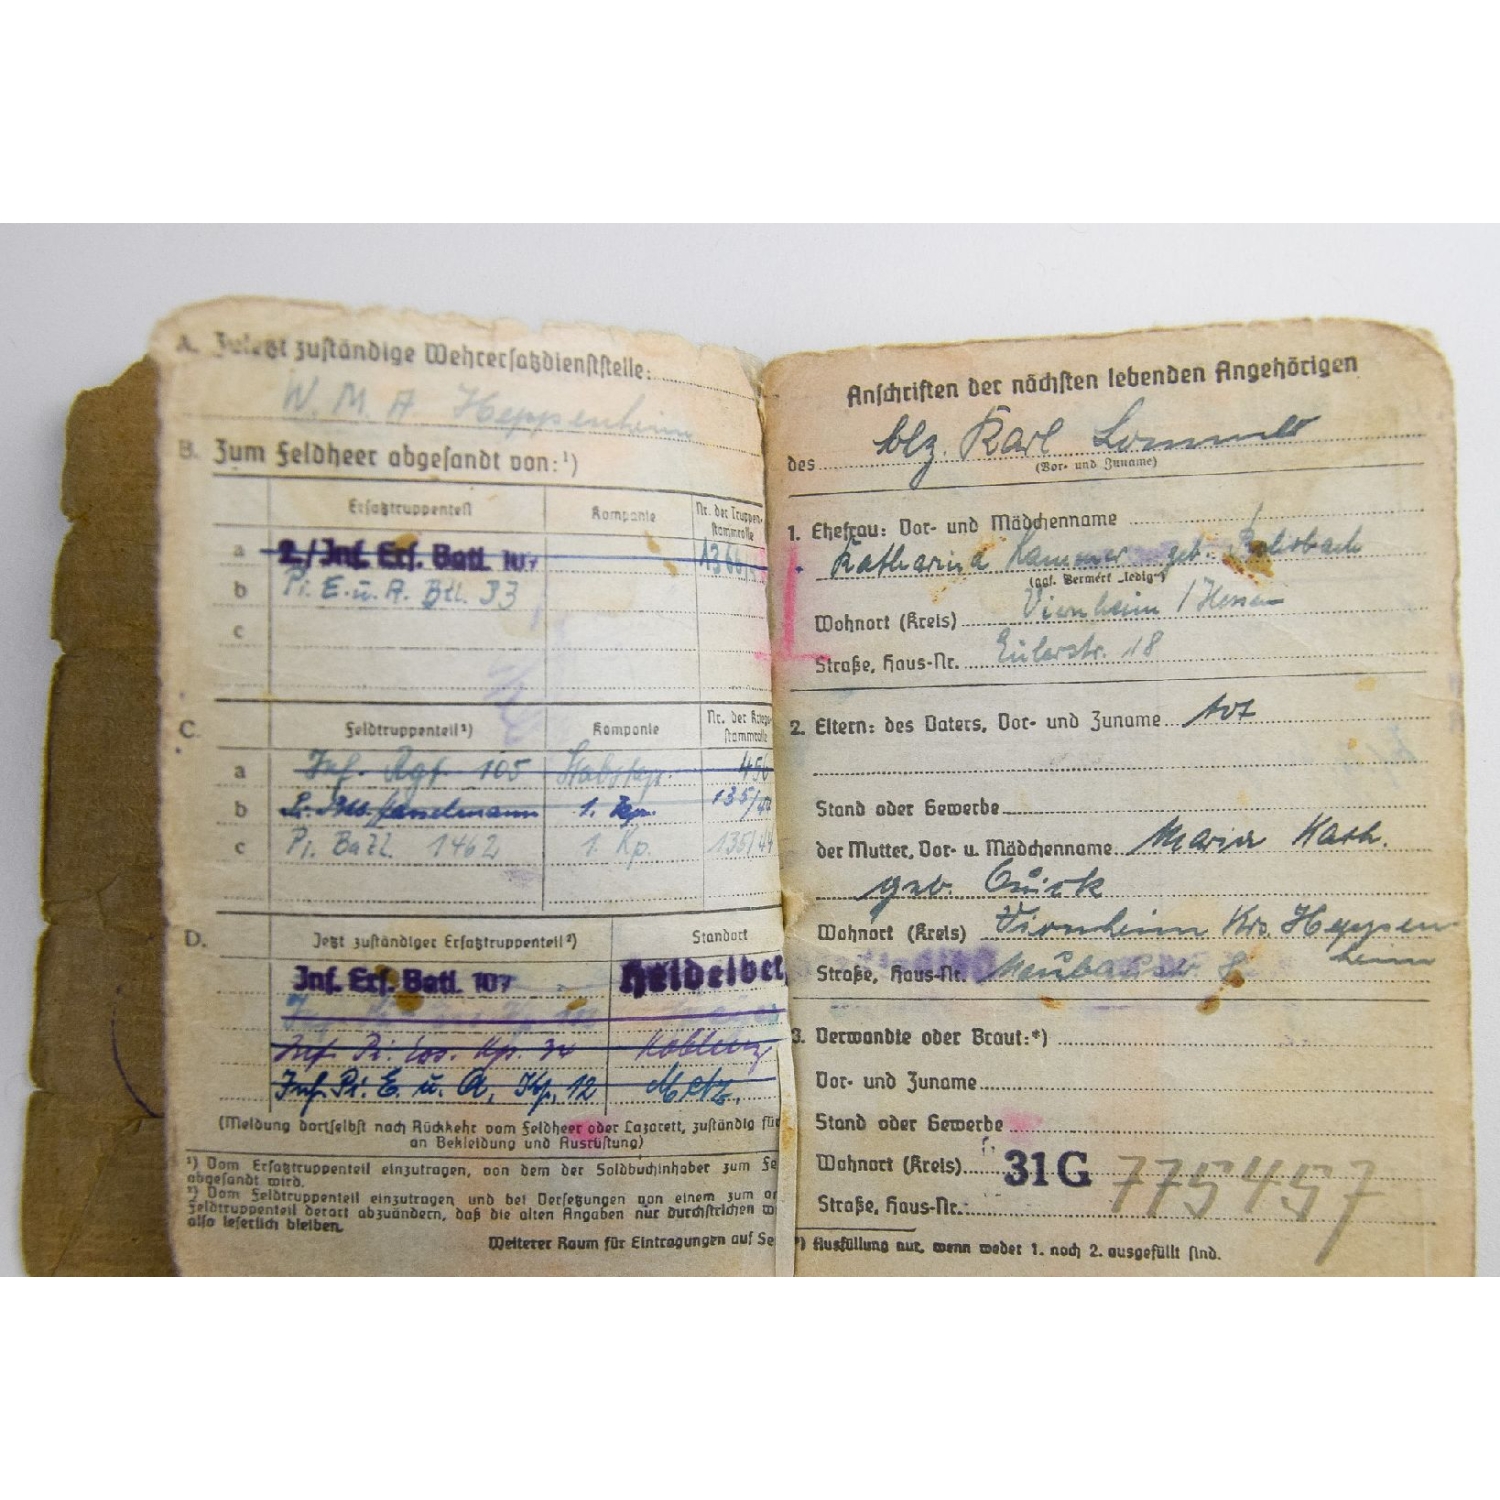 A. Zuletzt zuständige Wehrersatzdienststelle:
W. M. A Heppenheim
B. Zum Feldheer abgesandt von:¹)
Ersatztruppenteil Kompanie Nr. der Truppen-
stammrolle
a 2./Inf. Ers. Batl. 107
b Pi. E. u. A. Btl. 33
c
C. Feldtruppenteil²) Kompanie Nr. der Kriegs-
stammrolle
a Inf. Rgt 105 Stabskp. 456
b 1. Kp. 135/44
c Pi. Batl. 1462 1. Kp. 135/44
D. Jetzt zuständiger Ersatztruppenteil²) Standort
Inf. Ers. Batl. 107 Heidelbe
Inf. Pi. Kp. 34 Koblenz
Inf. Pi. E. u. A. Kp. 12 Metz.
(Meldung dortselbst nach Rückkehr vom Feldheer oder Lazarett, zuständig für
an Bekleidung und Ausrüstung)
¹) Vom Ersatztruppenteil einzutragen, von dem der Soldbuchinhaber zum Fe
abgesandt wird.
²) Vom Feldtruppenteil einzutragen und bei Versetzungen von einem zum an
Feldtruppenteil derart abzuändern, daß die alten Angaben nur durchstrichen w
also leserlich bleiben.
Weiterer Raum für Eintragungen auf Se
Anschriften der nächsten lebenden Angehörigen
des Karl
(Vor- und Zuname)
1. Ehefrau: Vor- und Mädchenname
Katharina geb.
(ggf. Vermerk „ledig“)
Wohnort (Kreis) Viernheim / Hessen
Straße, Haus-Nr. Eulerstr. 18
2. Eltern: des Vaters, Vor- und Zuname tot
Stand oder Gewerbe
der Mutter, Vor- u. Mädchenname Maria Kath.
geb.
Wohnort (Kreis) Viernheim Krs. Heppen
heim
Straße, Haus-Nr. 8
3. Verwandte oder Braut:*)
Vor- und Zuname
Stand oder Gewerbe
Wohnort (Kreis) 31G 775457
Straße, Haus-Nr.
*) Ausfüllung nur, wenn weder 1. noch 2. ausgefüllt sind.